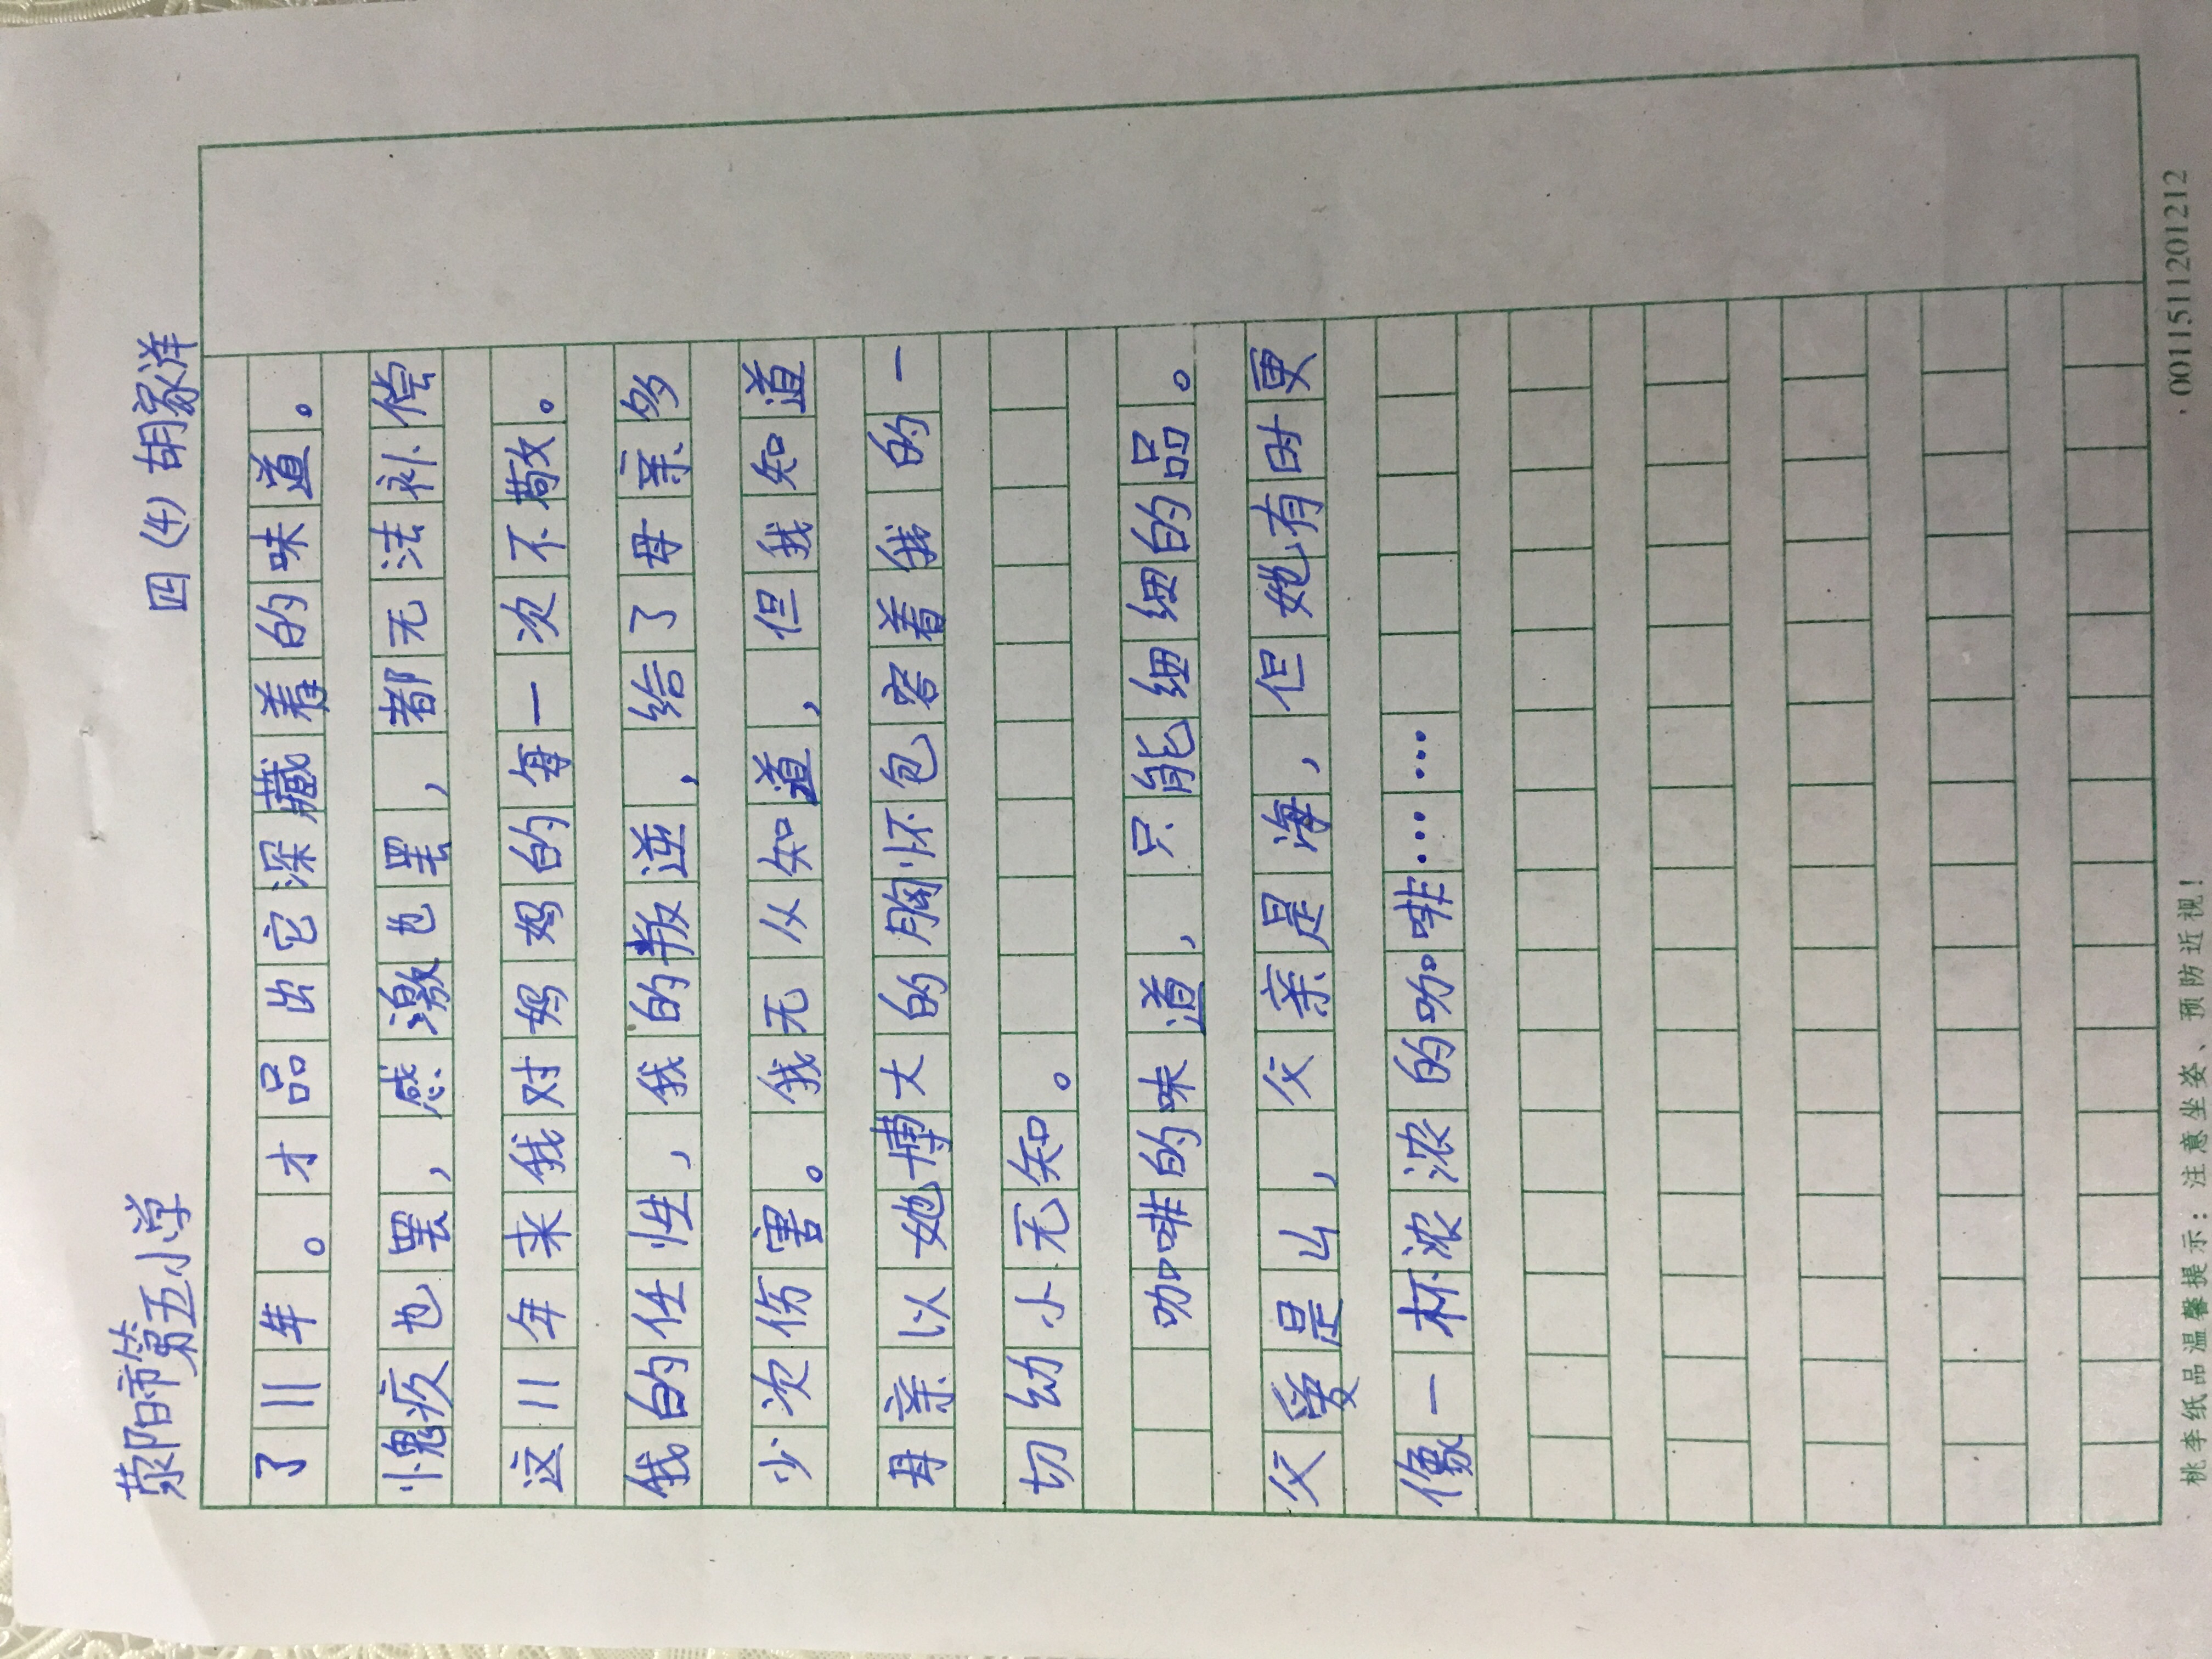 荥阳市第五小学 四(4) 胡家洋
了11年。才品出它深藏着的味道。
愧疚也罢,感激也罢,都无法补偿
这11年来我对妈妈的每一次不敬。
我的任性,我的叛逆,给了母亲多
少次伤害。我无从知道,但我知道
母亲以她博大的胸怀包容着我的一
切幼小无知。
咖啡的味道,只能细细的品。
父爱是山,父亲是海,但她有时更
像一杯浓浓的咖啡……
桃李纸品温馨提示:注意坐姿、预防近视!
·001151120121​2